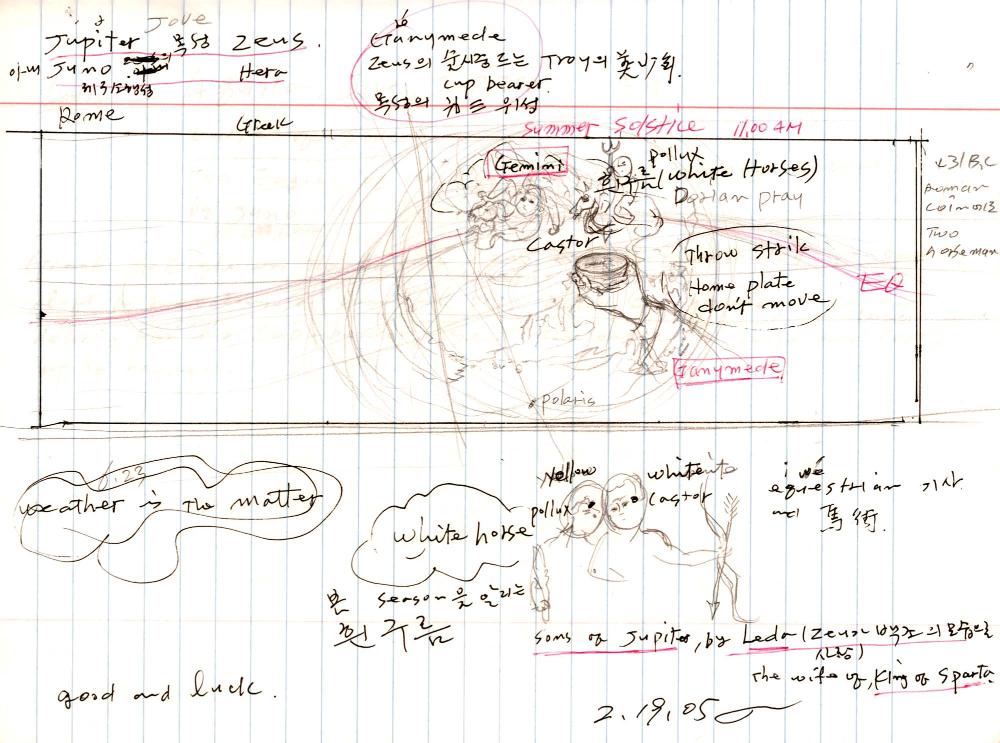 Jove
Jupiter 목성 Zeus.
Juno Hera
제3소행성
Rome Greek
Ganymede
Zeus의 술시중 드는 Troy의 美少年.
cup bearer.
목성의 위성
summer solstice 11.00 AM
Gemini
pollux
흰구름 (White Horses)
Dorian pray
Castor
Throw strik
Home plate
don't move
EQ
Ganymede
polaris
231 B.C
Roman
Coin
Two
horseman
6.23
weather is The matter
White horse
본 season을 알리는
흰구름
Yellow
pollux
white
castor
equestrian 기사.
馬術.
sons of Jupiter, by Leda (Zeus가 백조의 모습으로
사랑)
The wife of, King of Sparta.
good and luck.
2.19.05